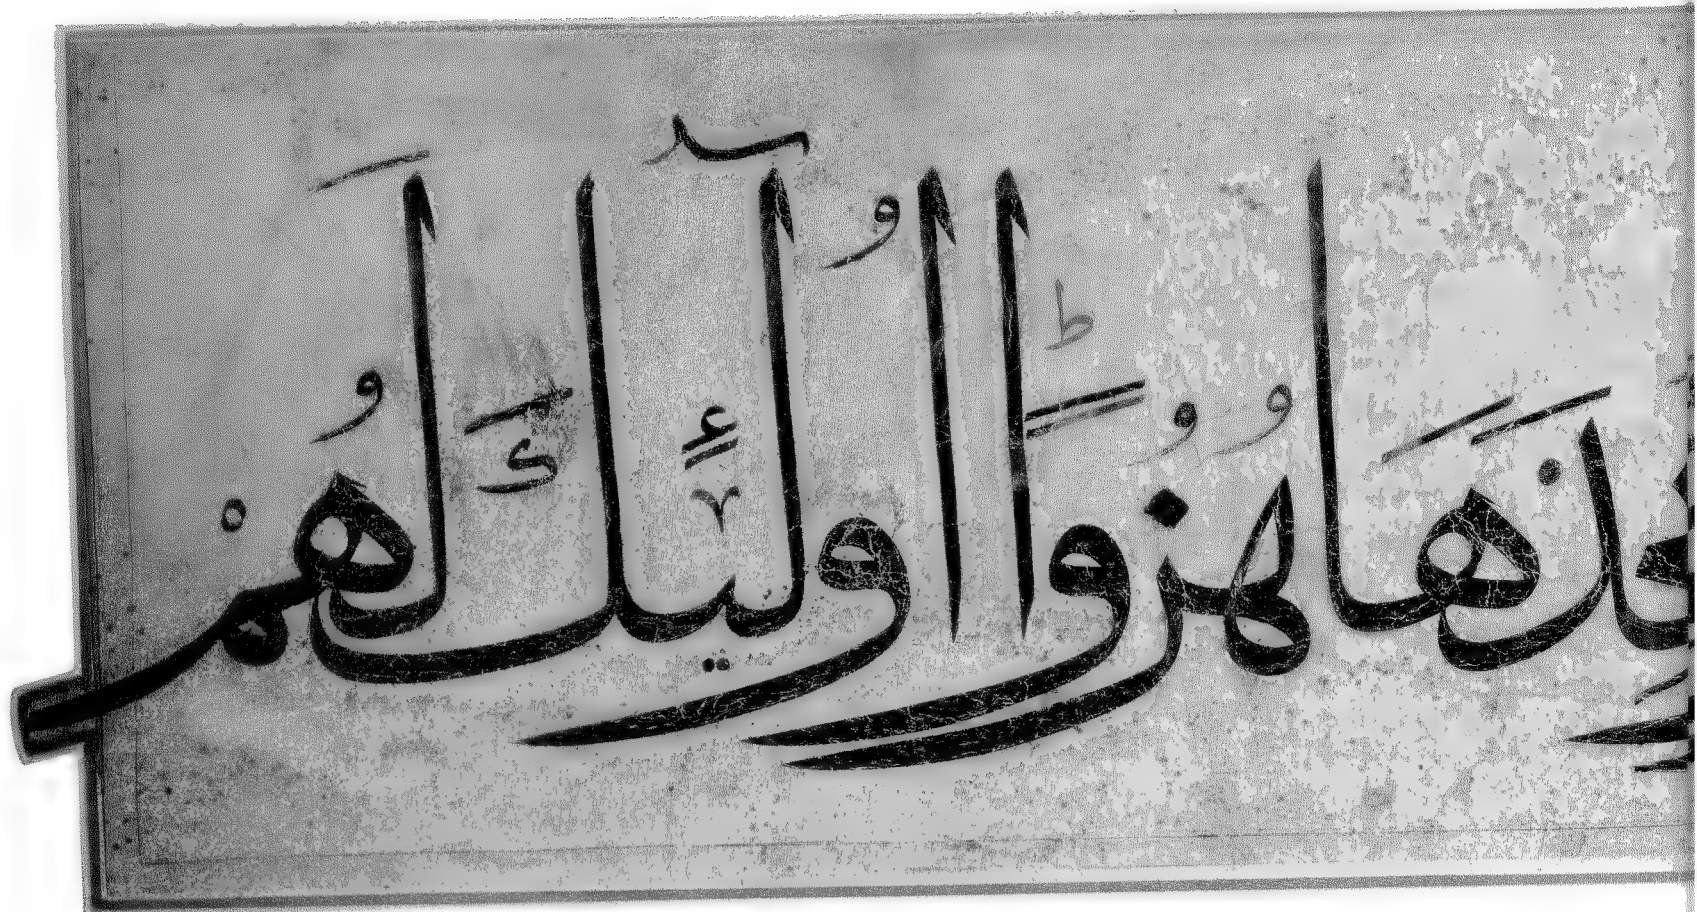 يتخذها هزوا اولئك لهم